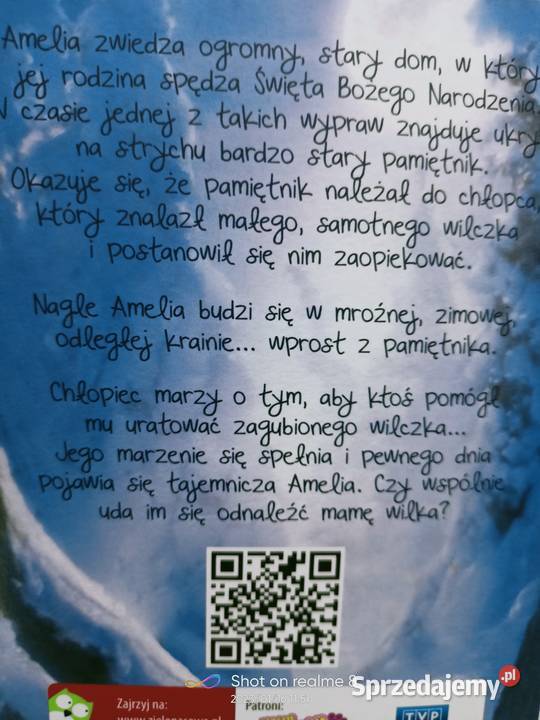 Amelia zwiedza ogromny, stary dom, w który
jej rodzina spędza Święta Bożego Narodzenia.
czasie jednej z takich wypraw znajduje ukry
na strychu bardzo stary pamiętnik.
Okazuje się, że pamiętnik należał do chłopca,
który znalazł małego, samotnego wilczka
i postanowił się nim zaopiekować.
Nagle Amelia budzi się w mroźnej, zimowej,
odległej krainie... wprost z pamiętnika.
Chłopiec marzy o tym, aby ktoś pomógł
mu uratować zagubionego wilczka...
Jego marzenie się spełnia i pewnego dnia
pojawia się tajemnicza Amelia. Czy wspólnie
uda im się odnaleźć mamę wilka?
Shot on realme 8
Sprzedajemy.pl
Zajrzyj na:
Patroni:
TVP